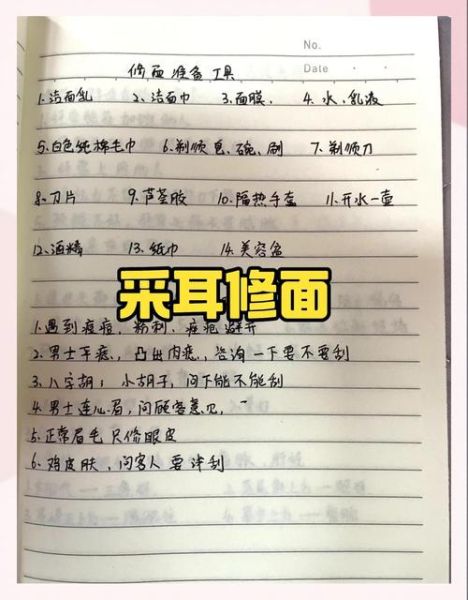 No.
Date
修面准备工具
1.洁面乳 2.洁面巾 3.面膜. 4.水、乳液
5.白色纯棉毛巾 6.剃须皂、碗、刷 7.剃须刀
8.刀片 9.芦荟胶 10.隔热手套 11.开水一壶
12.酒精 13.纸巾 14.美容盆
采耳修面
1.遇到痘痘,粉刺,痘疤避开
2.男士平痣,凸出肉痣,咨询一下要不要刮
3.八字胡;小胡子,问下能不能刮
4.男士连心眉,问顾客意见,
5.正常眉毛只修眼皮
6.鸡皮肤,问客人要 刮